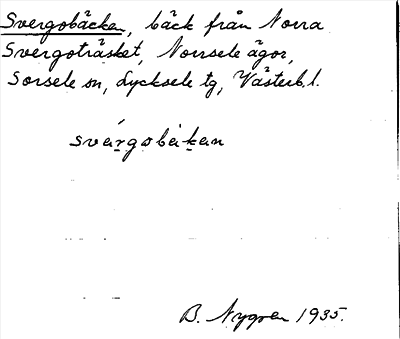 Svergobäcken, bäck från Norra
Svergoträsket, Norrsele ägor,
Sorsele sn, Lycksele tg, Västerb.l.
B. Nygren 1935.